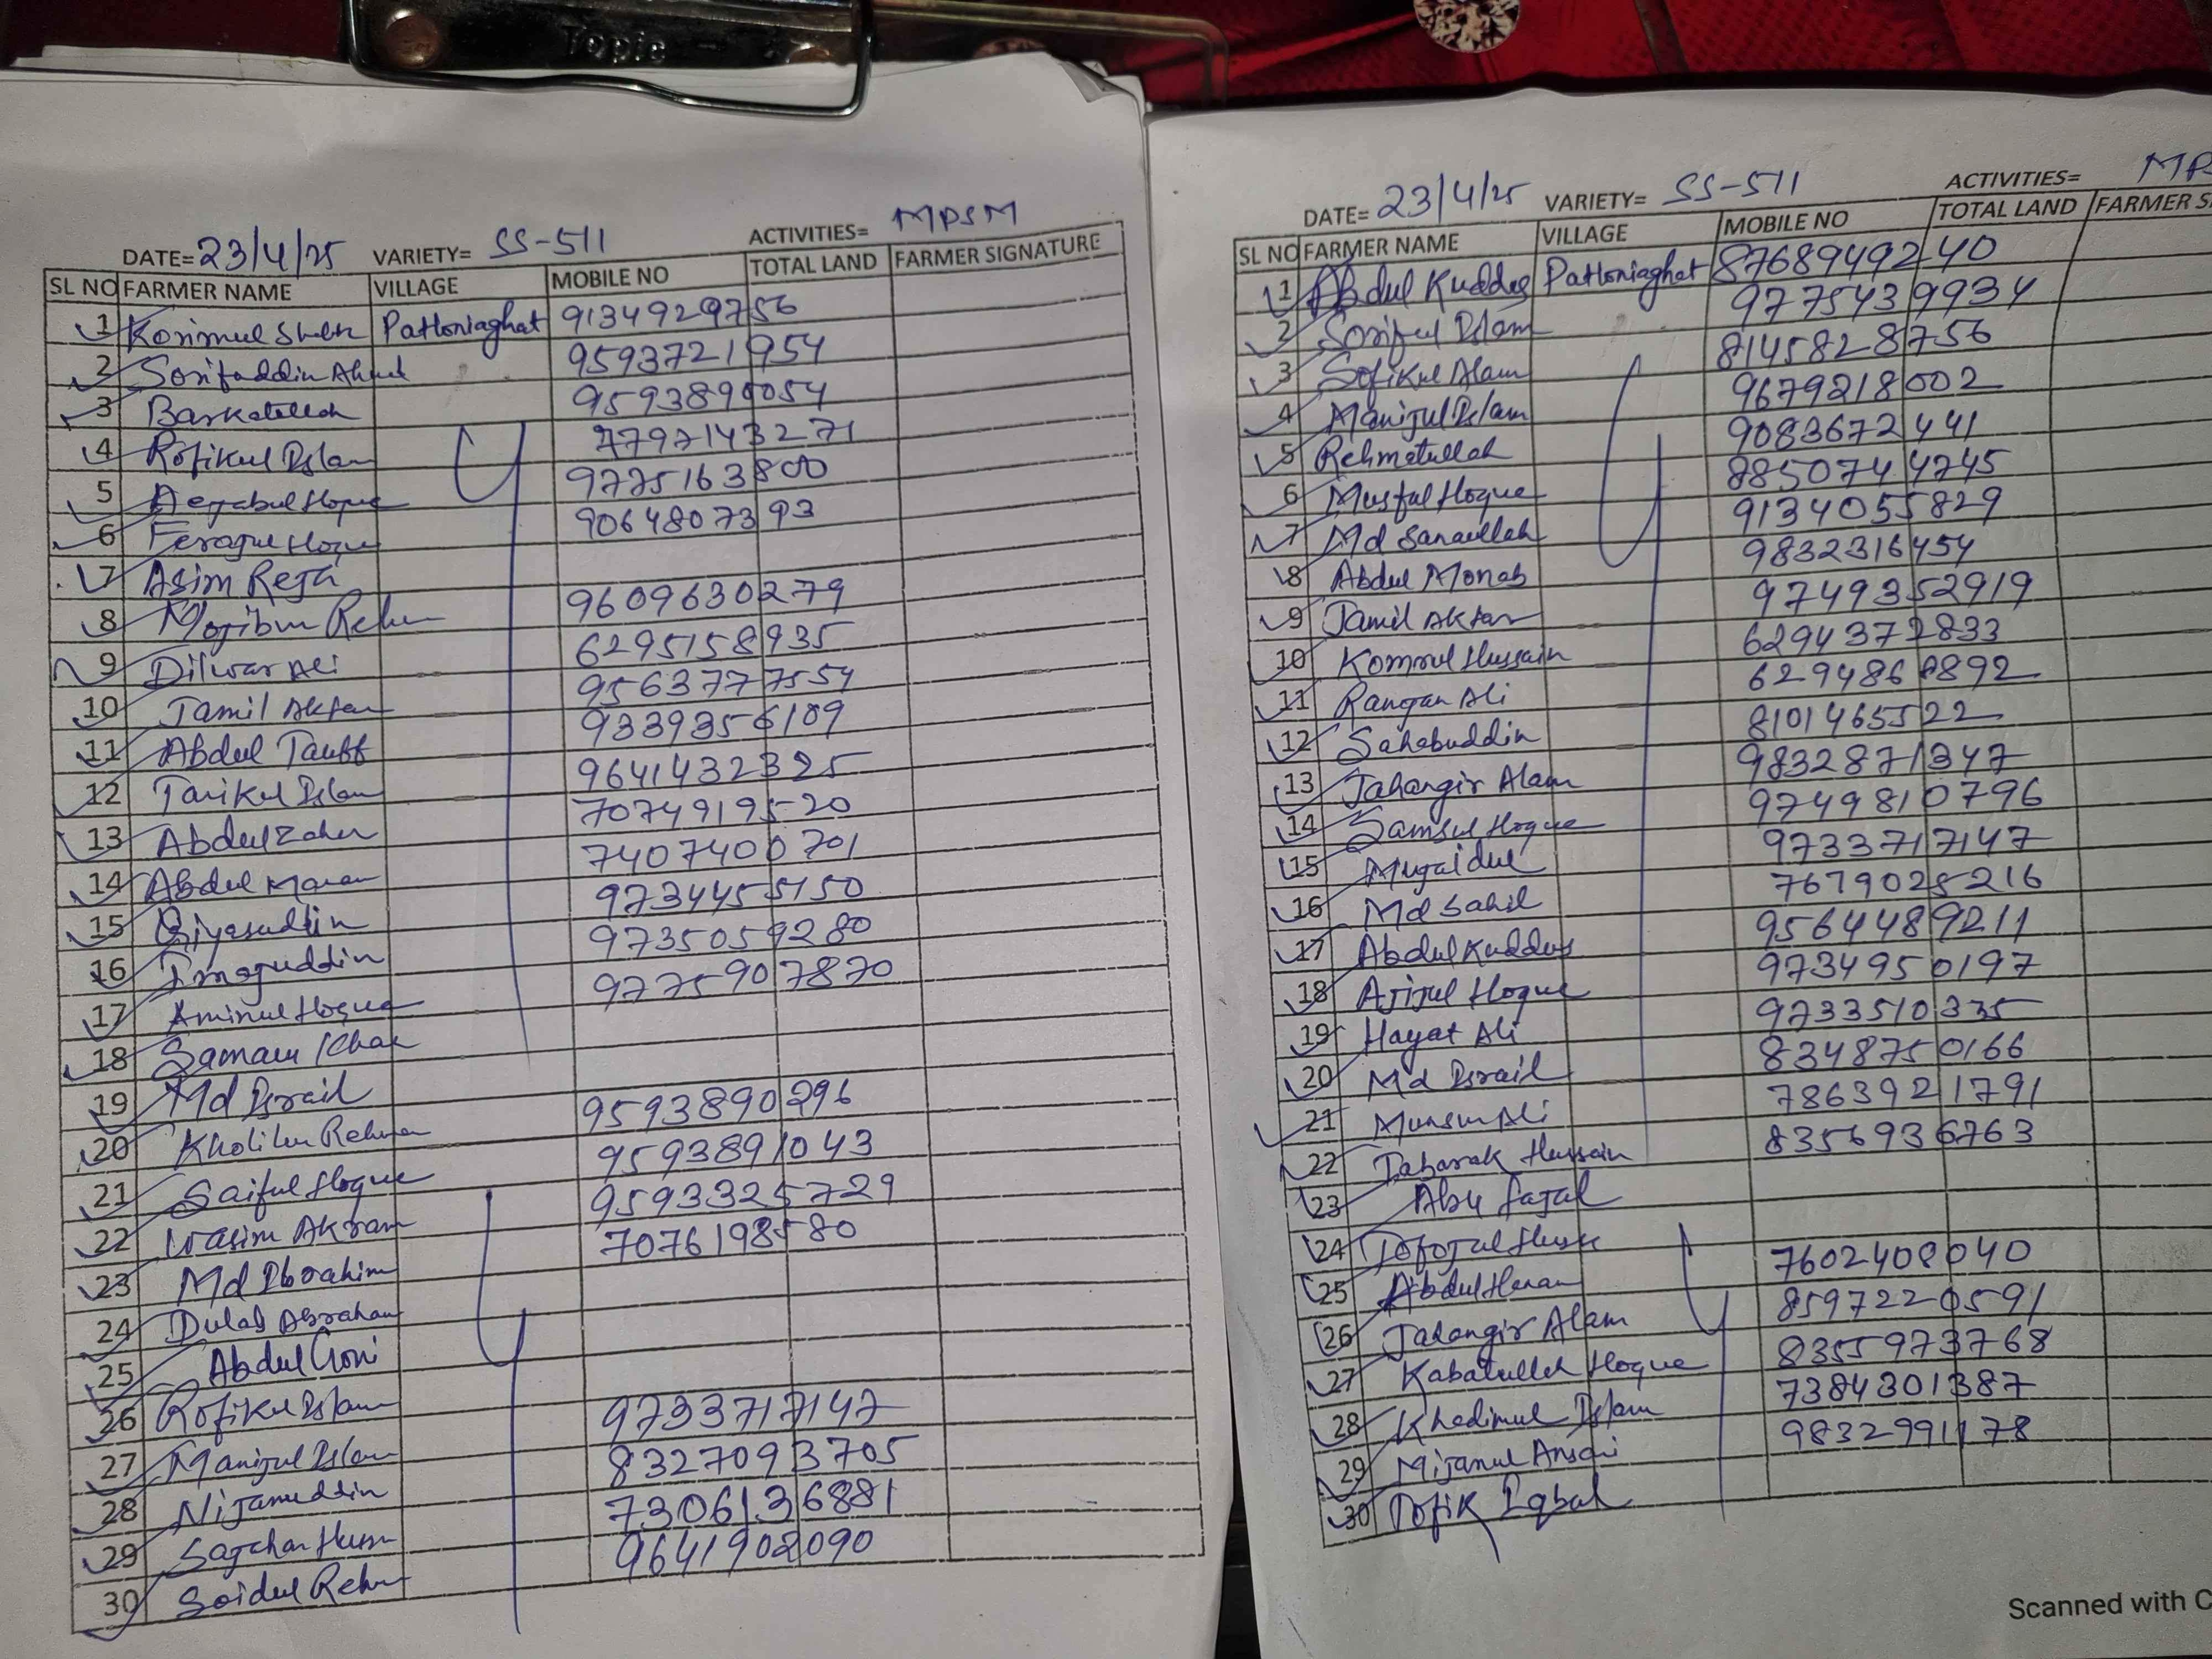 Topic
DATE= 23/4/25 VARIETY= SS-511 ACTIVITIES= MPSM
SL NO FARMER NAME VILLAGE MOBILE NO TOTAL LAND FARMER SIGNATURE
1 Korimul Patloniaghat 9134929756
2 Sorifuddin Ahmed 9593721954
3 Barkatullah 9593890054
4 Rofikul Islam 7797143271
5 Aejabul Hoque 9775163800
6 Ferajul Hoque 9064807393
7 Asim Reja
8 Mojibur Rehm 9609630279
9 Dilwar Ali 6295158935
10 Jamil Aktar 9563777554
11 Abdul Tauff 9339356109
12 Tarikul Islam 9641432325
13 Abdul Zaher 7074919520
14 Abdul Manan 7407400701
15 Giyasuddin 9734455150
16 Imajuddin 9735059280
17 Aminul Hoque 9775907870
18 Samaun Khan
19 Md Israil
20 Kholilur Rehman 9593890296
21 Saiful Hoque 9593891043
22 Wasim Akram 9593325729
23 Md Ibrahim 7076198580
24 Dulab
25 Abdul Goni
26 Rofikul Islam
27 Manijul Islam 9733717147
28 Nijamuddin 8327093705
29 Sajahan 7306136881
30 Soidul Rehm 9641902090
DATE= 23/4/25 VARIETY= SS-511 ACTIVITIES= MPS
SL NO FARMER NAME VILLAGE MOBILE NO TOTAL LAND FARMER S
1 Abdul Kuddus Patloniaghat 8768949240
2 Soriful Islam 9775439934
3 Sofikul Alam 8145828756
4 Manijul Islam 9679218002
5 Rehmatullah 9083672441
6 Musful Hoque 8850744745
7 Md Sanaullah 9134055829
8 Abdul Monab 9832316454
9 Jamil Aktar 9749352919
10 Komrul Hussain 6294372833
11 Ranjan Ali 6294868892
12 Sahabuddin 8101465522
13 Jahangir Alam 9832871347
14 Samsul Hoque 9749810796
15 Mujaidul 9733717147
16 Md Sahil 7679025216
17 Abdul Kuddus 9564489211
18 Ajijul Hoque 9734950197
19 Hayat Ali 9733510335
20 Md Israil 8348750166
21 Munsur Ali 7863921791
22 Tabarak Hussain 8356936763
23 Abu Fajal
24 Tofojul
25 Abdul Hanan 7602408040
26 Jahangir Alam 8597220591
27 Kabatullah Hoque 8355973768
28 Khadimul Islam 7384301387
29 Mijanul Ansari 9832991178
30 Tofik Iqbal
Scanned with C